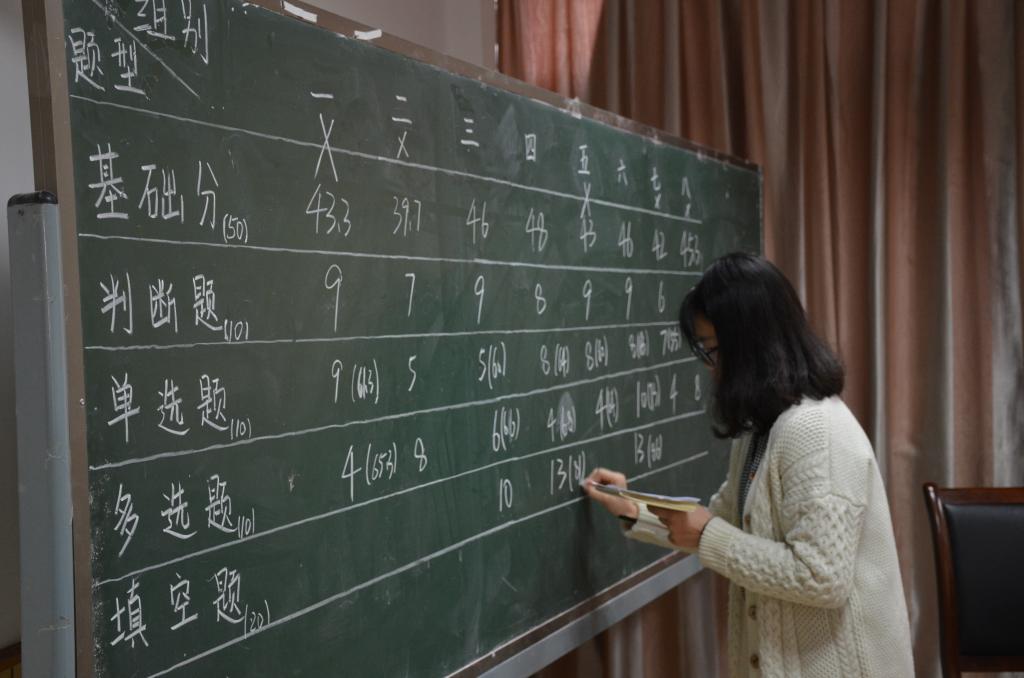 组别
题型
一 二 三 四 五 六 七 八
基础分(50) 43.3 39.7 46 48 43 46 42 45.3
判断题(10) 9 7 9 8 9 9 6
单选题(10) 9 5 5 8 8 8 7
多选题(10) 4(65.3) 8 6 4 4 10 4 8
填空题(20) 10 13 13